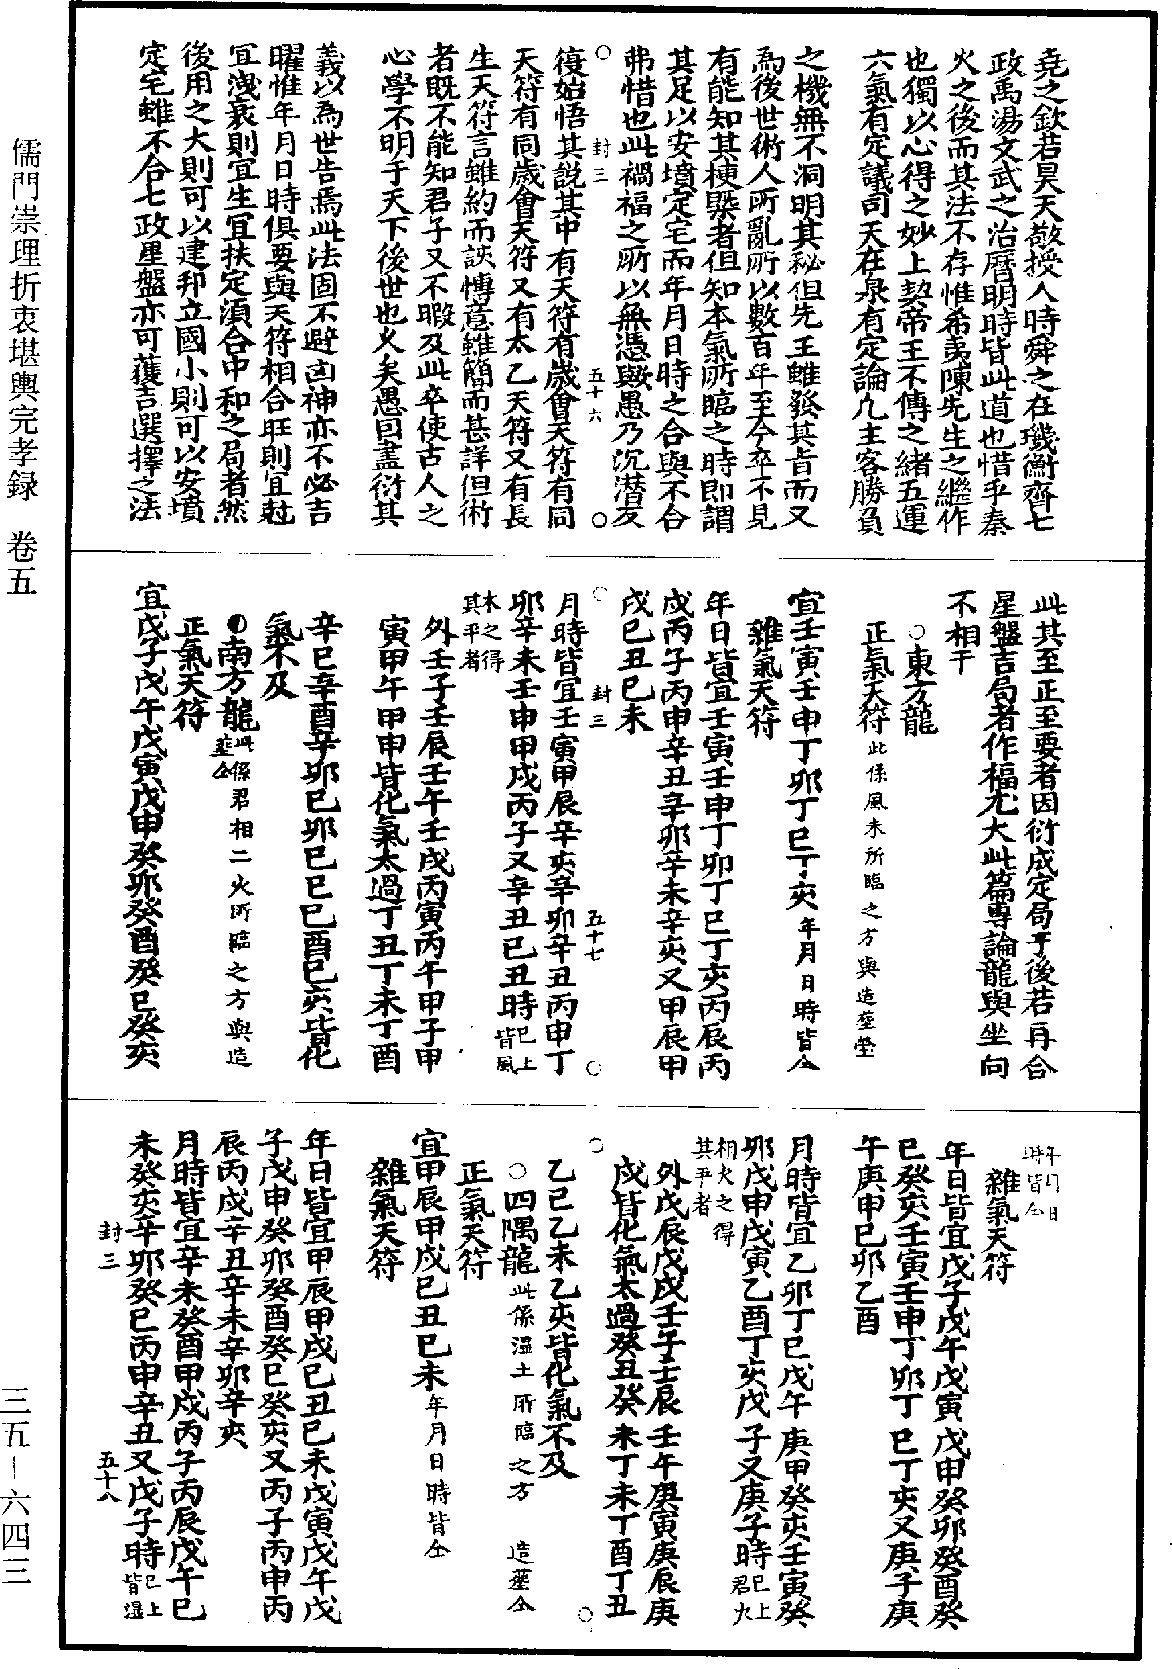 儒門崇理折衷堪輿完孝録　卷五
三五－六四三
堯之欽若昊天敬授人時舜之在璣衡齊七
政禹湯文武之治曆明時皆此道也惜乎秦
火之後而其法不存惟希夷陳先生之繼作
也獨以心得之妙上契帝王不傳之緒五運
六氣有定議司天在泉有定論九主客勝負
之機無不洞明其秘但先王雖發其旨而又
為後世術人所亂所以數百年至今卒不見
有能知其梗槩者但知本氣所臨之時即謂
其足以安墳定宅而年月日時之合與不合
弗惜也此禍福之所以無憑歟愚乃沉潜反
封三　五十六
復始悟其說其中有天符有歲會天符有同
天符有同歲會天符又有太乙天符又有長
生天符言雖約而該慱意雖簡而甚詳但術
者既不能知君子又不暇及此卒使古人之
心學不明于天下後世也乆矣愚因盡衍其
義以為世告焉此法固不避凶神亦不必吉
曜惟年月日時俱要與天符相合旺則宜尅
宜洩衰則宜生宜扶定湏合中和之局者然
後用之大則可以建邦立國小則可以安墳
定宅雖不合七政星盤亦可獲吉選擇之法
此其至正至要者因衍成定局于後若再合
星盤吉局者作福尤大此篇專論龍與坐向
不相干
○東方龍
正氣天符此係風木所臨之方與造塟塋
宜壬寅壬申丁卯丁巳丁亥年月日時皆仝
雜氣天符
年日皆宜壬寅壬申丁卯丁巳丁亥丙辰丙
戌丙子丙申辛丑辛卯辛未辛亥又甲辰甲
戌巳丑巳未
封三　五十七
月時皆宜壬寅甲辰辛亥辛卯辛丑丙申丁
卯辛未壬申甲戌丙子又辛丑巳丑時巳上皆風
木之得其平者
外壬子壬辰壬午壬戌丙寅丙午甲子甲
寅甲午甲申皆化氣太過丁丑丁未丁酉
辛巳辛酉辛卯巳卯巳巳巳酉巳亥皆化
氣不及
●南方龍此係君相二火所臨之方與造塟仝
正氣天符
宜戊子戊午戊寅戊申癸卯癸酉癸巳癸亥
年月日時皆仝
雜氣天符
年日皆宜戊子戊午戊寅戊申癸卯癸酉癸
巳癸亥壬寅壬申丁卯丁巳丁亥又庚子庚
午庚申巳卯乙酉
月時皆宜乙卯丁巳戊午庚甲癸亥壬寅癸
卯戊申戊寅乙酉丁亥戊子又庚子時巳上君火
相火之得其平者
外戊辰戊戌壬午壬辰壬午庚寅庚辰庚
戌皆化氣太過癸丑癸未丁未丁酉丁丑
乙巳乙未乙亥皆化氣不及
○四隅龍此係濕土所臨之方　造塟仝
正氣天符
宜甲辰甲戌巳丑巳未年月日時皆仝
雜氣天符
年日皆宜甲辰甲戌巳丑巳未戊寅戊午戊
子戊申癸卯癸酉癸巳癸亥又丙子丙申丙
辰丙戌辛丑辛未辛卯辛亥
月時皆宜辛未癸酉甲戌丙子丙辰戊午巳
未癸亥辛卯癸巳丙申辛丑又戊子時巳上皆濕
封三　五十八